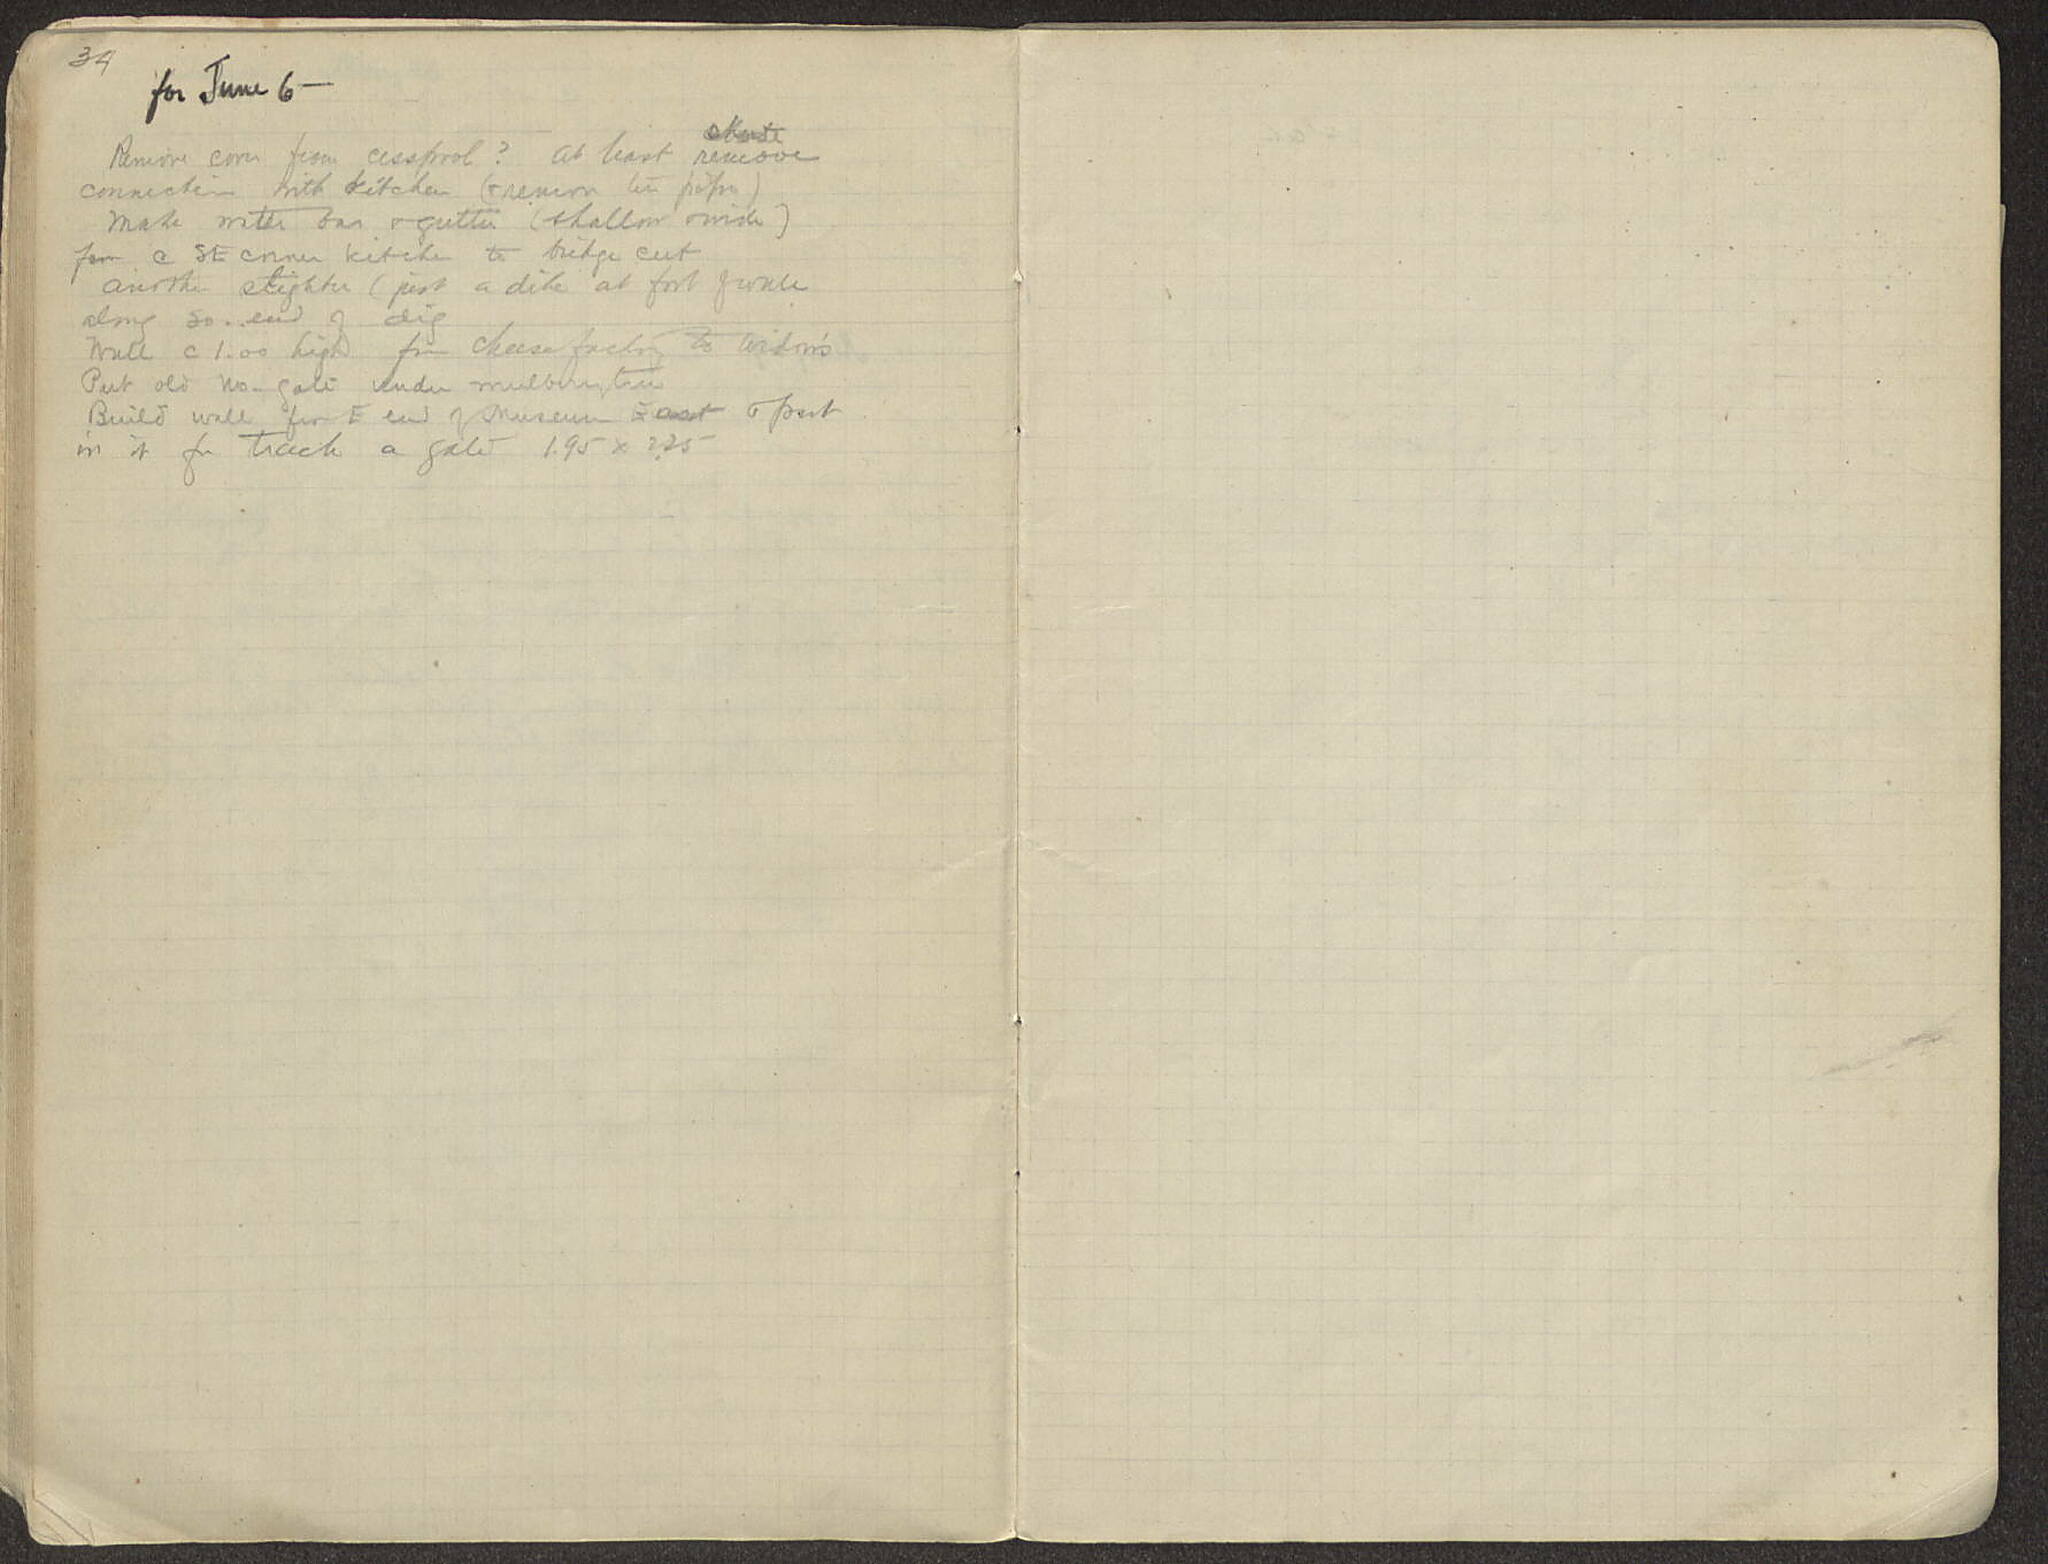 34
for June 6—
Remove cover from cesspool? At least remove
connection with kitchen (& remove tin pipe)
Make water bar & gutter (shallow & wide)
from c SE corner kitchen to bridge cut
another slighter (just a dike at foot of wall
along So. end of dig
Wall c 1.00 high from cheese factory to widow's
Put old No- gate under mulberry tree
Build wall from E end of Museum East & put
in it for track a gate 1.95 x 2.25